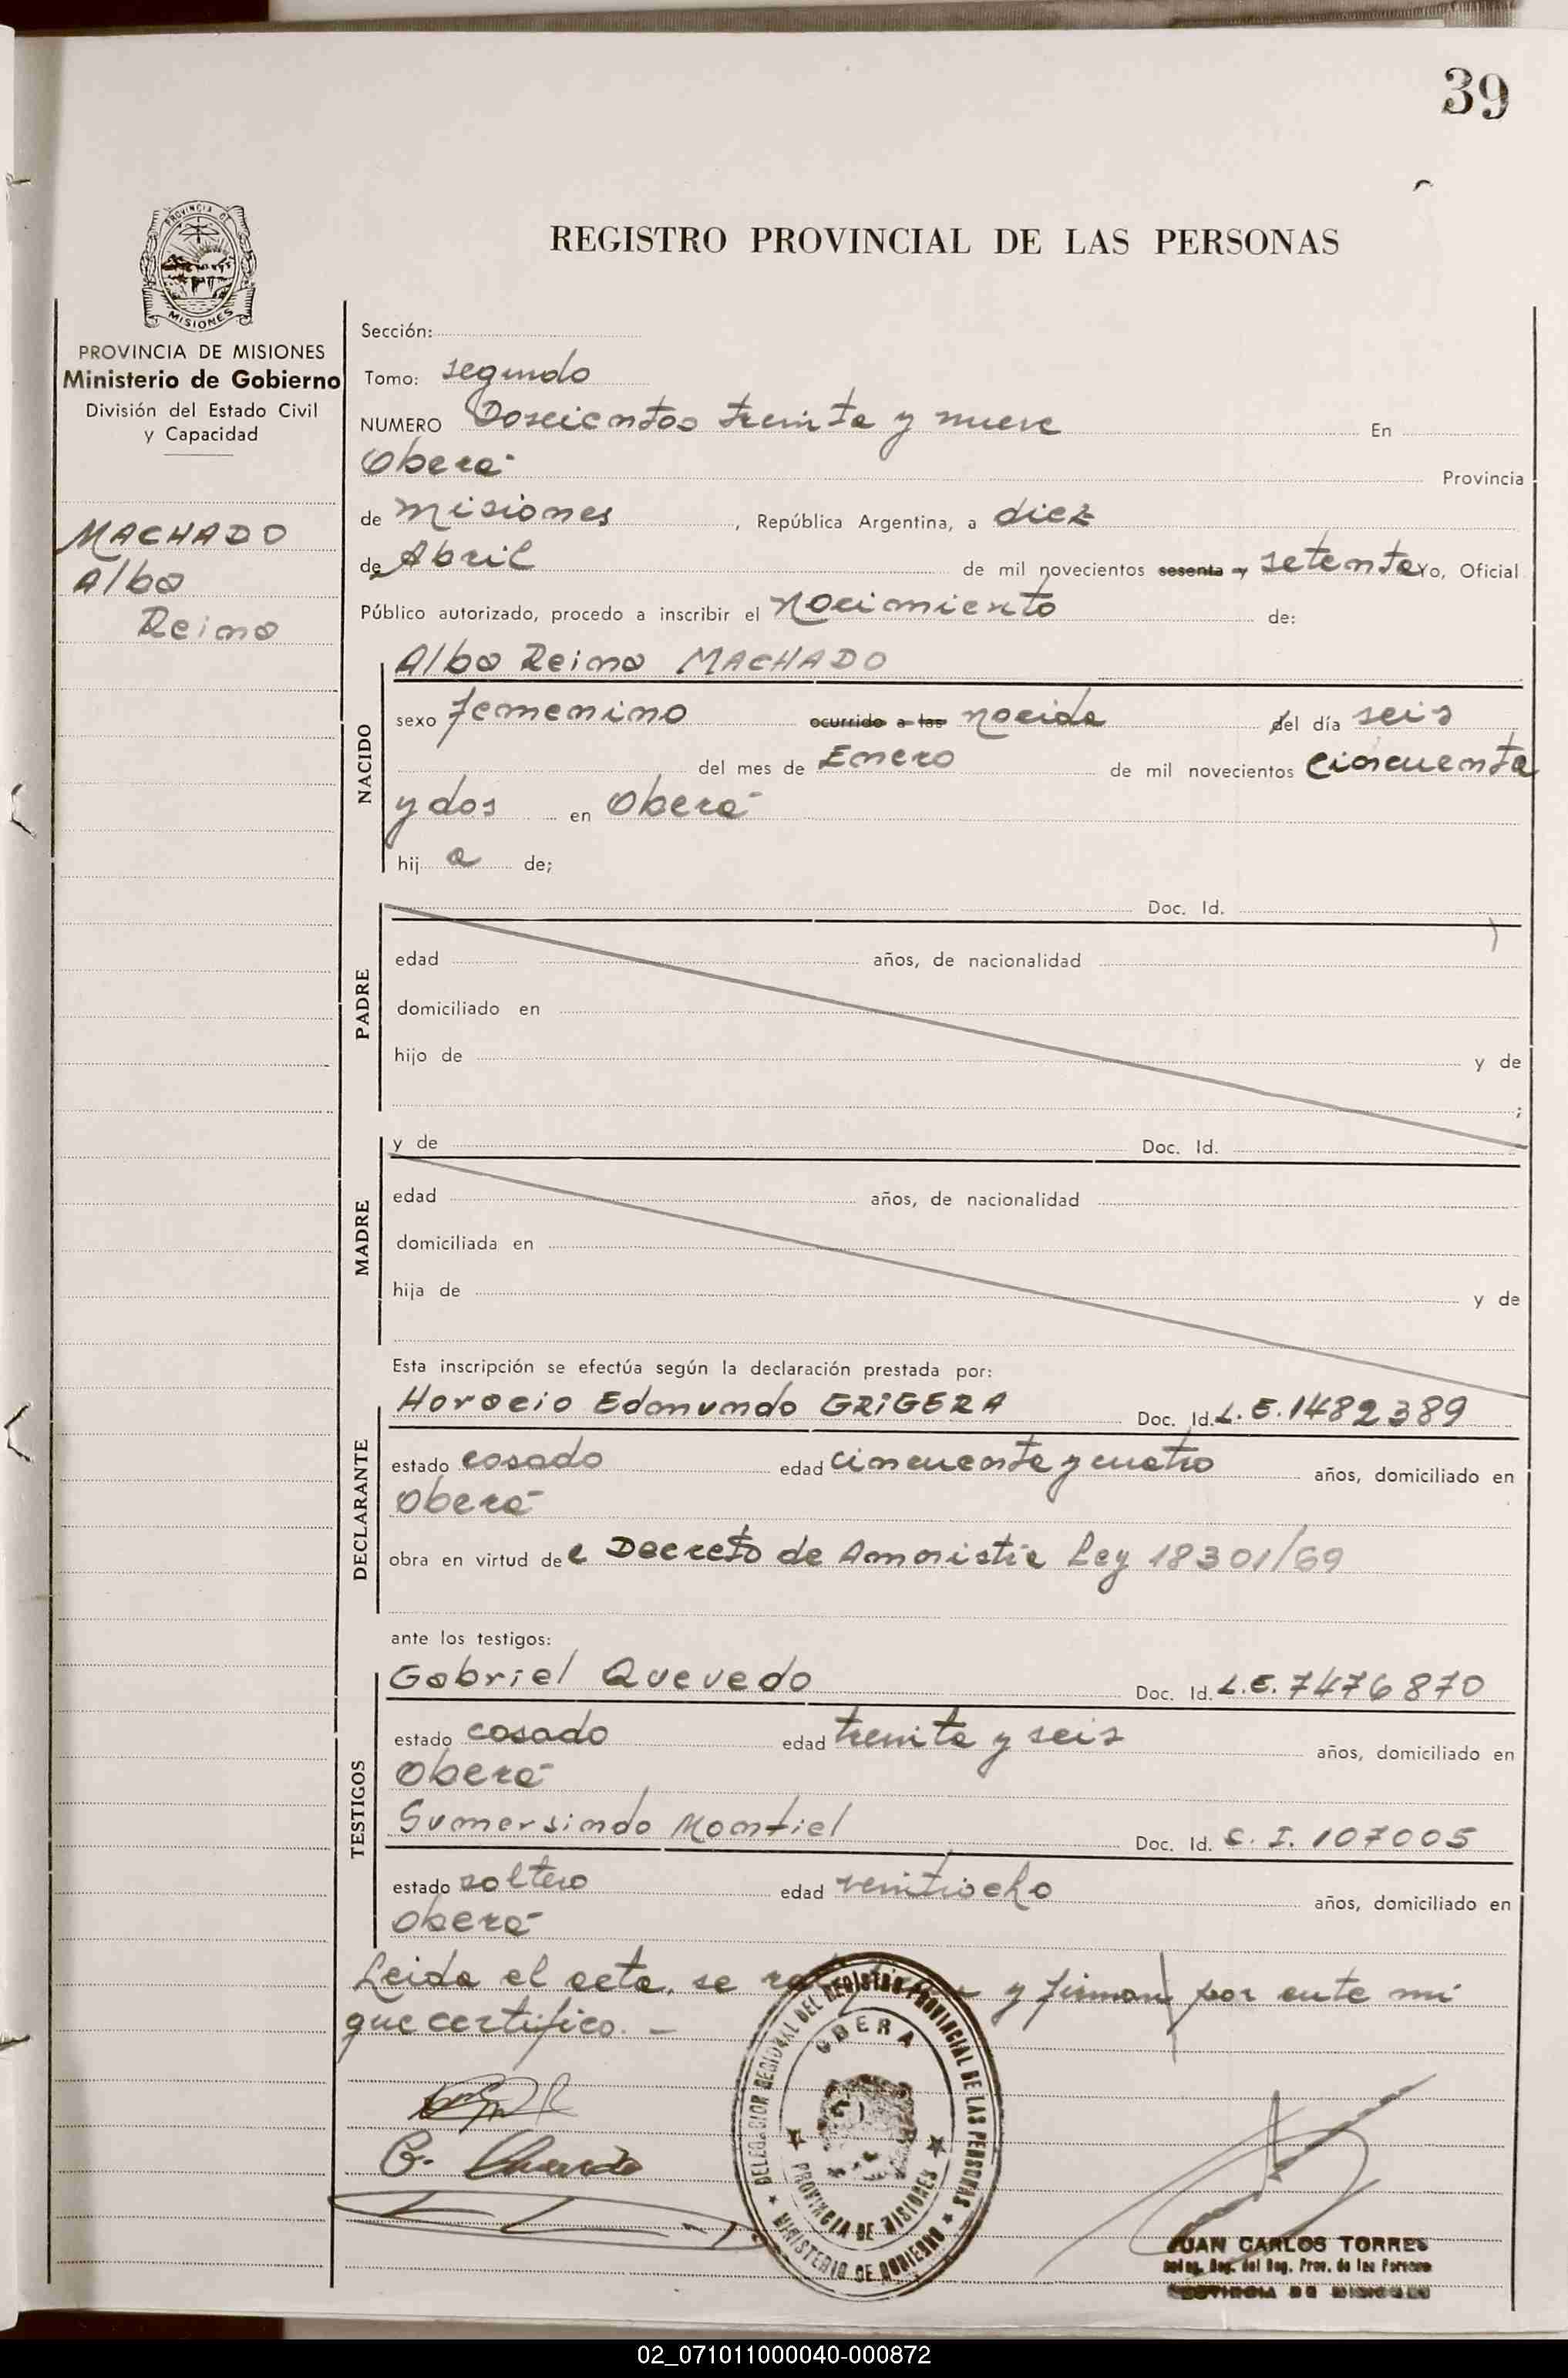 39
PROVINCIA DE
MISIONES
REGISTRO PROVINCIAL DE LAS PERSONAS
PROVINCIA DE MISIONES
Ministerio de Gobierno
División del Estado Civil
y Capacidad
MACHADO
Alba
Reina
Sección:
Tomo: segundo
NUMERO Doscientos treinta y nueve En
Oberá
Provincia
de Misiones, República Argentina, a diez
de Abril de mil novecientos sesenta y setenta Yo, Oficial
Público autorizado, procedo a inscribir el nacimiento de:
NACIDO
Alba Reina MACHADO
sexo femenino ocurrido a las nacida del día seis
del mes de Enero de mil novecientos cincuenta
y dos en Oberá
hij a de;
PADRE
Doc. Id.
edad años, de nacionalidad
domiciliado en
hijo de y de
;
MADRE
y de Doc. Id.
edad años, de nacionalidad
domiciliada en
hija de y de
Esta inscripción se efectúa según la declaración prestada por:
DECLARANTE
Horacio Edmundo GRIGERA Doc. Id. L.E. 1482389
estado casado edad cincuenta y cuatro años, domiciliado en
Oberá
obra en virtud de l Decreto de Amnistía Ley 18301/69
ante los testigos:
TESTIGOS
Gabriel Quevedo Doc. Id. L.E. 7476870
estado casado edad treinta y seis años, domiciliado en
Oberá
Gumersindo Montiel Doc. Id. C. I. 107005
estado soltero edad veintiocho años, domiciliado en
Oberá
Leida el acta, se ratifican y firman por ante mi
que certifico. -
DELEGACION REGIONAL DEL REGISTRO PROVINCIAL DE LAS PERSONAS
OBERA
PROVINCIA DE MISIONES
MINISTERIO DE GOBIERNO
G. Quevedo
JUAN CARLOS TORRES
Deleg. Reg. del Reg. Prov. de las Personas
PROVINCIA DE MISIONES
02_071011000040-000872